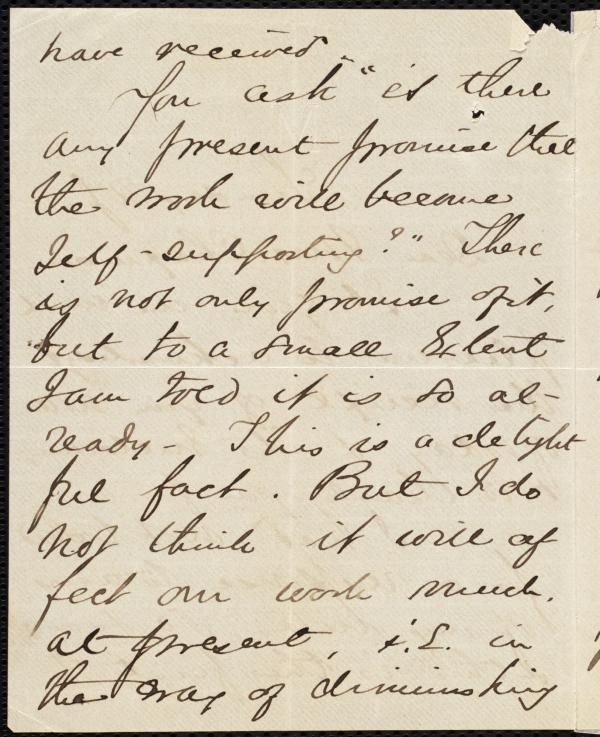 have received.
You ask "is there
any present promise that
the work will become
self-supporting?" There
is not only promise of it,
but to a small extent
I am told it is so al-
ready - This is a delight
ful fact. But I do
not think it will af
fect our work much.
at present, i.e. in
the way of diminishing